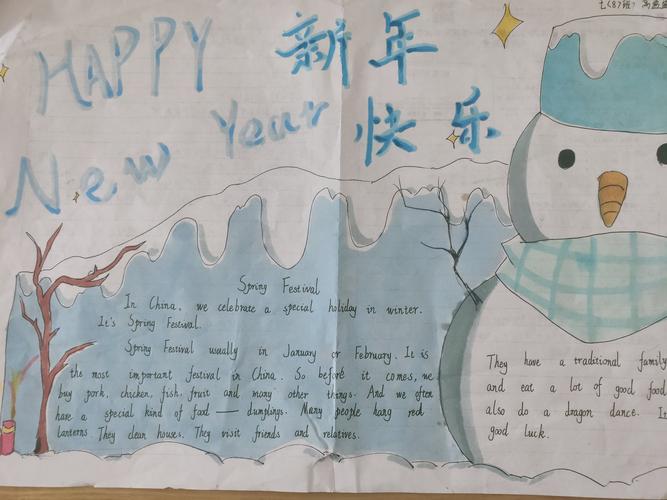 七(8)班
HAPPY 新年
New Year 快乐
Spring Festival
In China, we celebrate a special holiday in winter.
It's Spring Festival.
Spring Festival usually in January or February. It is
the most important festival in China. So before it comes, we
buy pork, chicken, fish, fruit and many other things. And we often
have a special kind of food — dumplings. Many people hang red
lanterns They clean houses. They visit friends and relatives.
They have a traditional family
and eat a lot of good food
also do a dragon dance. It
good luck.